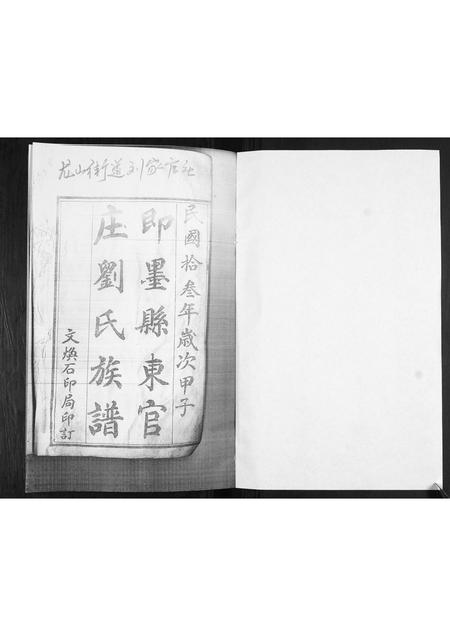 龙山街道刘家官庄
民國拾叁年歲次甲子
即墨縣東官
庄劉氏族譜
文煥石印局印訂